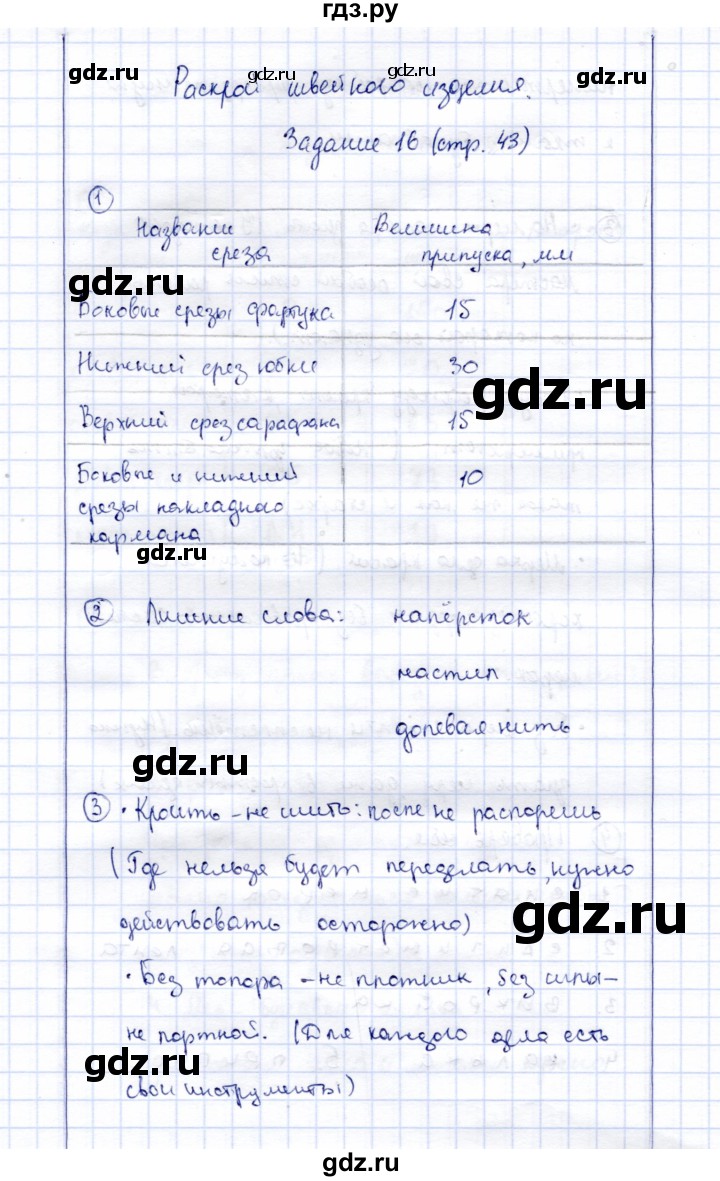 гдз.ру
gdz.ru gdz.ru
Раскрой швейного изделия.
Задание 16 (стр. 43)
1
Название Величина
среза припуска, мм
gdz.ru
Боковые срезы фартука 15
Нижний срез юбки 30
gdz.ru
Верхний срез сарафана 15
Боковые и нижний 10
срезы накладного
кармана
gdz.ru
2 Лишние слова: напёрсток
настил
долевая нить.
gdz.ru
3 • Кроить – не шить: после не распорешь
(Где нельзя будет переделать, нужно
действовать осторожно)
gdz.ru
• Без топора – не плотник, без иглы –
не портной. (Для каждого дела есть
gdz.ru
свои инструменты)
gdz.ru